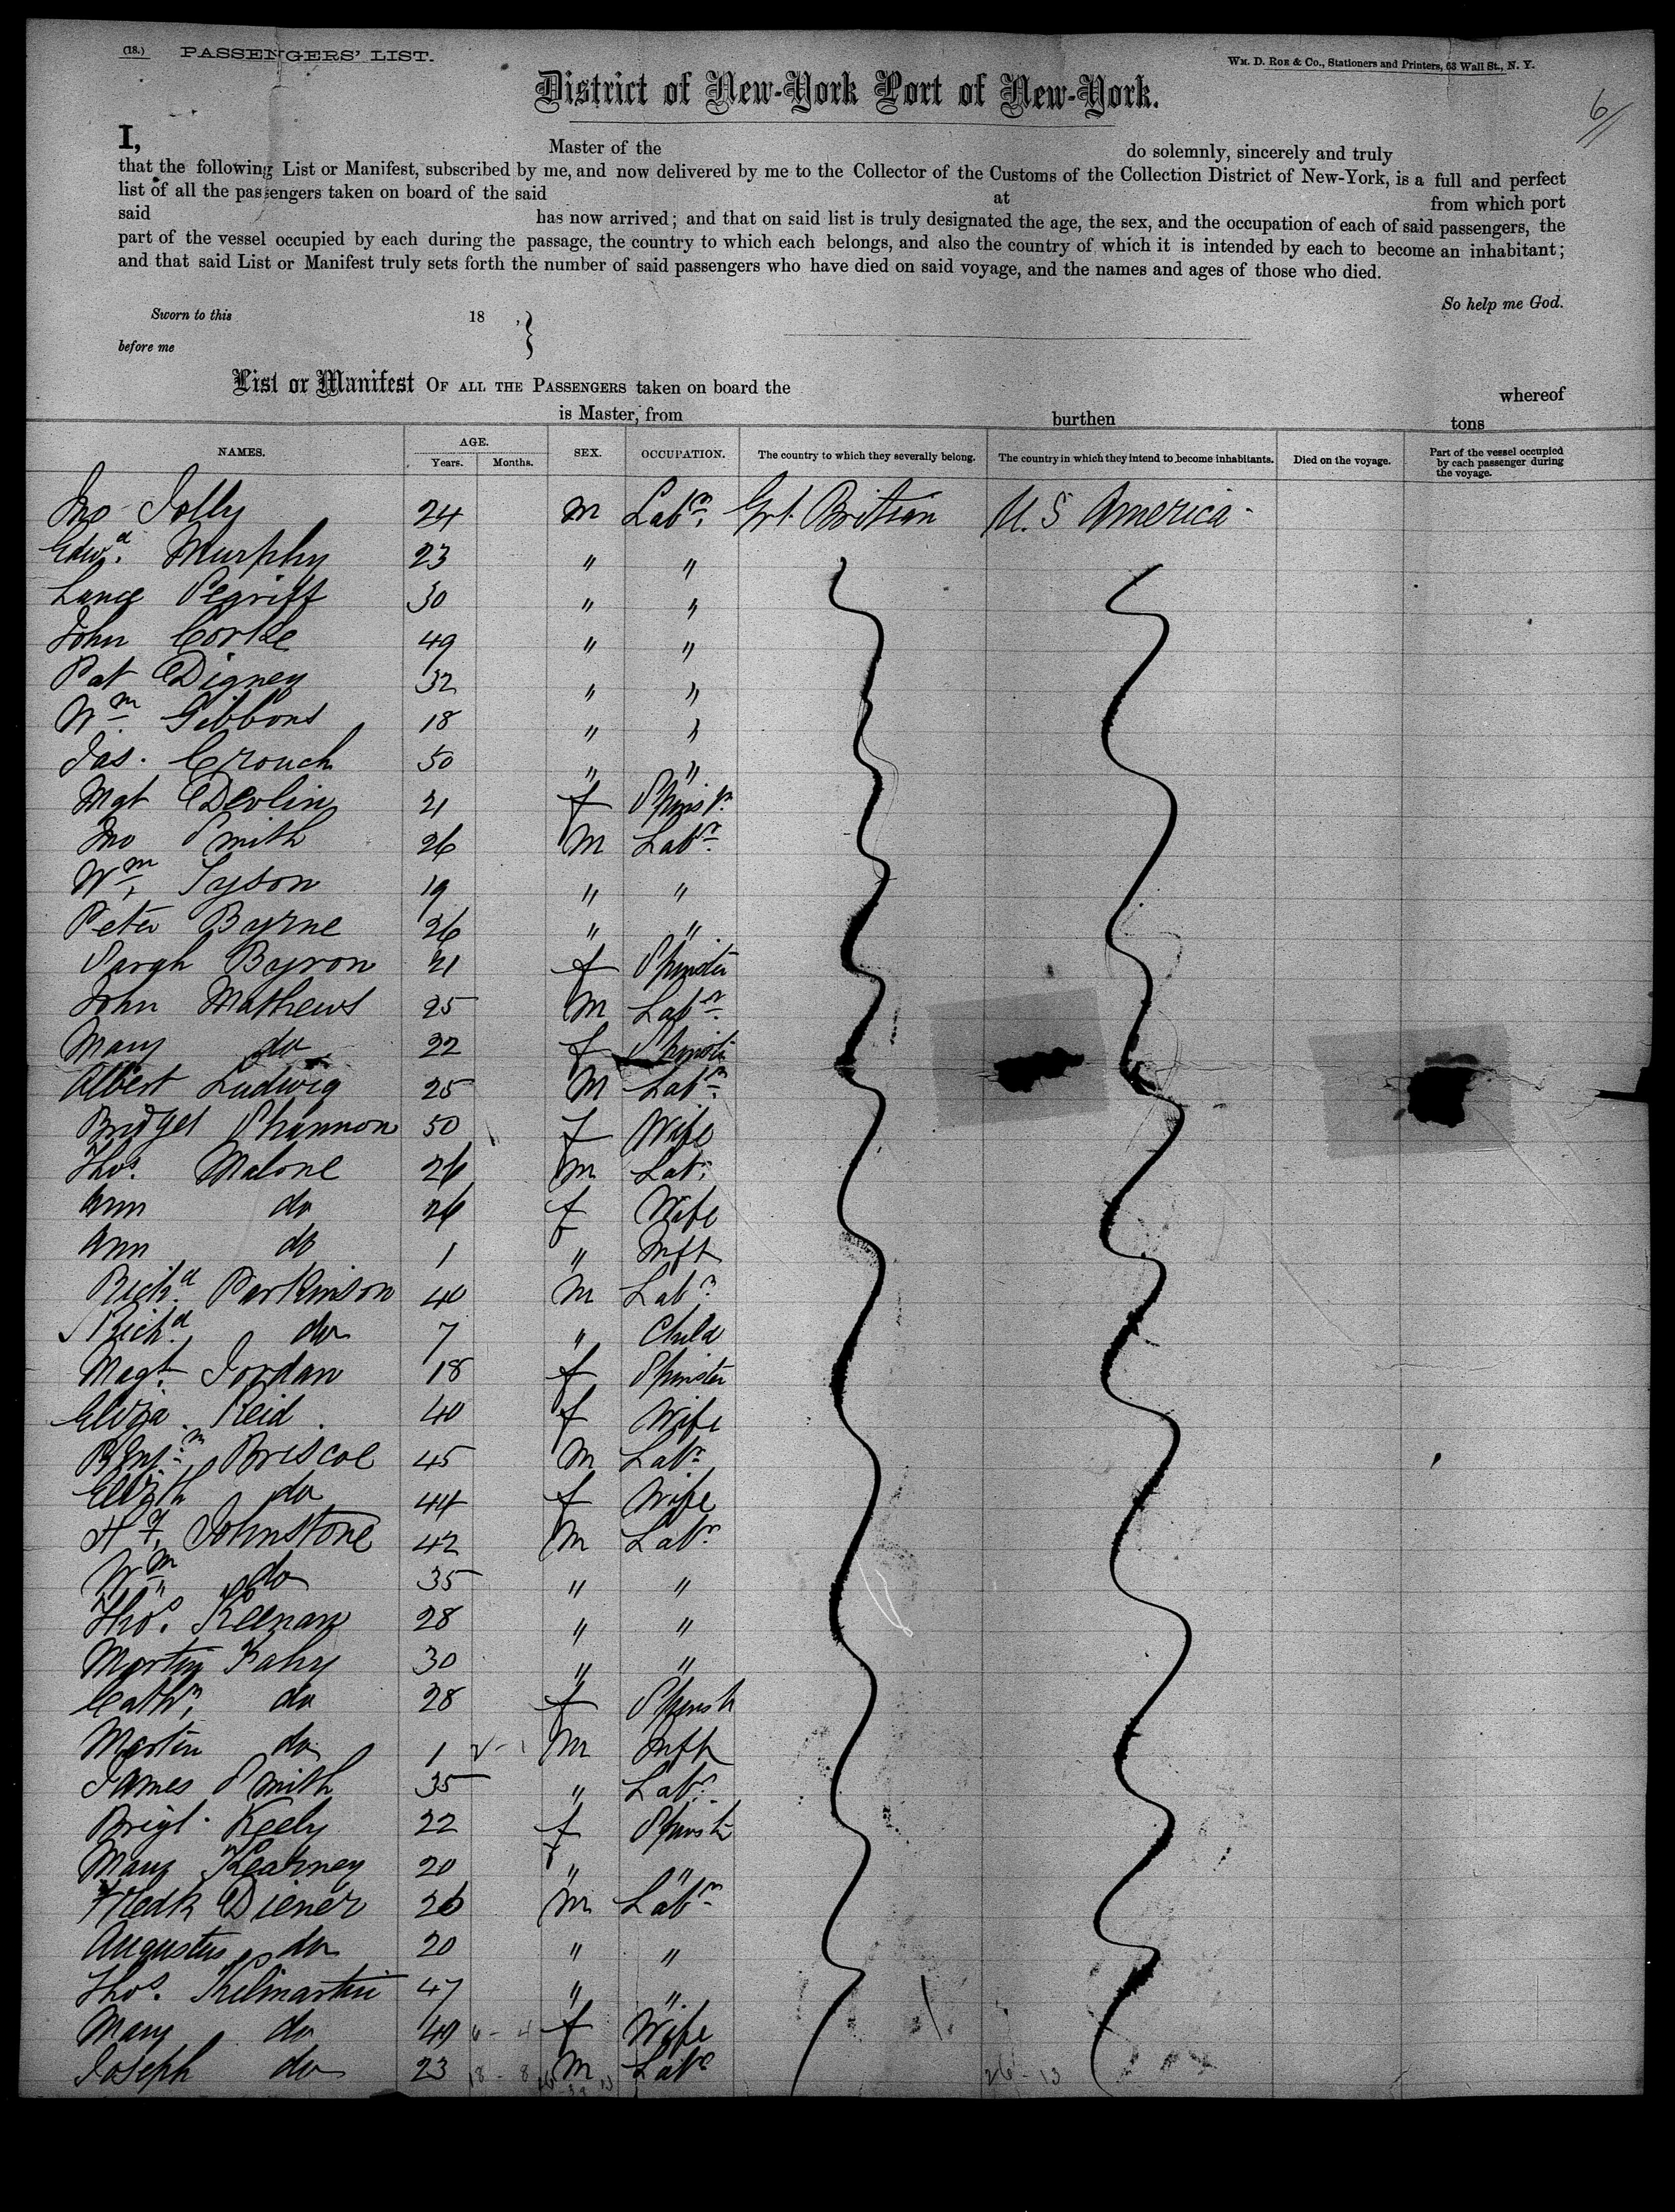 (18.) PASSENGERS' LIST. WM. D. ROE & CO., Stationers and Printers, 63 Wall St., N. Y.
District of New-York Port of New-York.
6//
I, Master of the do solemnly, sincerely and truly
that the following List or Manifest, subscribed by me, and now delivered by me to the Collector of the Customs of the Collection District of New-York, is a full and perfect
list of all the passengers taken on board of the said at from which port
said has now arrived; and that on said list is truly designated the age, the sex, and the occupation of each of said passengers, the
part of the vessel occupied by each during the passage, the country to which each belongs, and also the country of which it is intended by each to become an inhabitant;
and that said List or Manifest truly sets forth the number of said passengers who have died on said voyage, and the names and ages of those who died.
So help me God.
Sworn to this 18 ,
before me
List or Manifest OF ALL THE PASSENGERS taken on board the whereof
is Master, from burthen tons
NAMES. AGE. Years. Months. SEX. OCCUPATION. The country to which they severally belong. The country in which they intend to become inhabitants. Died on the voyage. Part of the vessel occupied by each passenger during the voyage.
Jno Jolly 24 m Labr. Grt. Britian U. S America
Edwd. Murphy 23 " "
30 " "
John Corke 49 " "
Pat Digney 32 " "
Wm Gibbons 18 " "
Jas. Crouch 50 " "
Mgt Devlin 21 f Spinsr
Jno Smith 26 m Labr
Wm, Tyson 19 " "
Peter Byrne 26 " "
Sarah Byron 21 f Spinster
John Mathews 25 m Labr
Mary do 22 f Spinster
Albert Ludwig 25 m Labr
Bridget Shannon 50 f Wife
Thos. Malone 26 m Labr
Ann do 26 f Wife
Ann do 1 " Inft
Richd. Parkinson 40 m Labr
Richd. do 7 " Child
Magt. Jordan 18 f Spinster
Eliza. Reid 40 f Wife
Benjmn Briscoe 45 m Labr
Elizth do 44 f Wife
Johnstone 42 m Labr
Wm do 35 " "
Thos. Keenan 28 " "
Martin Fahy 30 " "
Cathn, do 28 f Spinstr
Martin do 1 m Inft
James Smith 35 " Labr
Brigt. Keely 22 f Spinstr
Mary Kearney 20 " "
Fredk Diener 26 m Labr
Augustus do 20 " "
Thos. Kilmartin 47 " "
Mary do 49 f Wife
Joseph do 23 m Labr
26 - 13